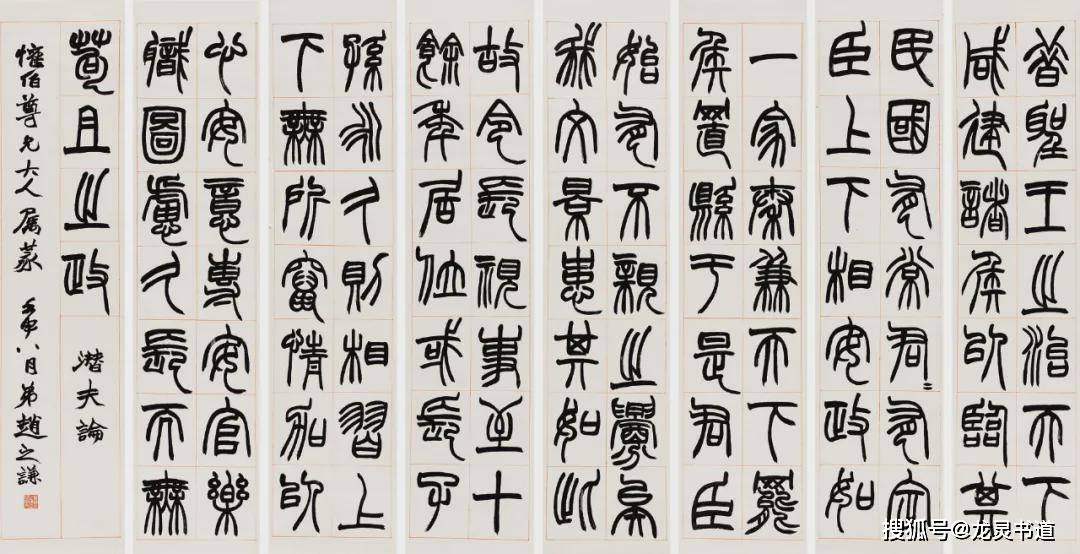 昔聖王之治天下
咸建諸侯以臨其
民國有常君〻有定
臣上下相安政如
一家秦兼天下罷
侯置縣于是君臣
始有不親之釁
我文景患其如此
故令長視事至十
餘年居位或長子
孫永久則相習上
下無所竄情加以
心安意專安官樂
職圖慮久長而無
苟且之政 潛夫論
懽伯尊兄大人屬篆 八月弟趙之謙
搜狐号@龙灵书道